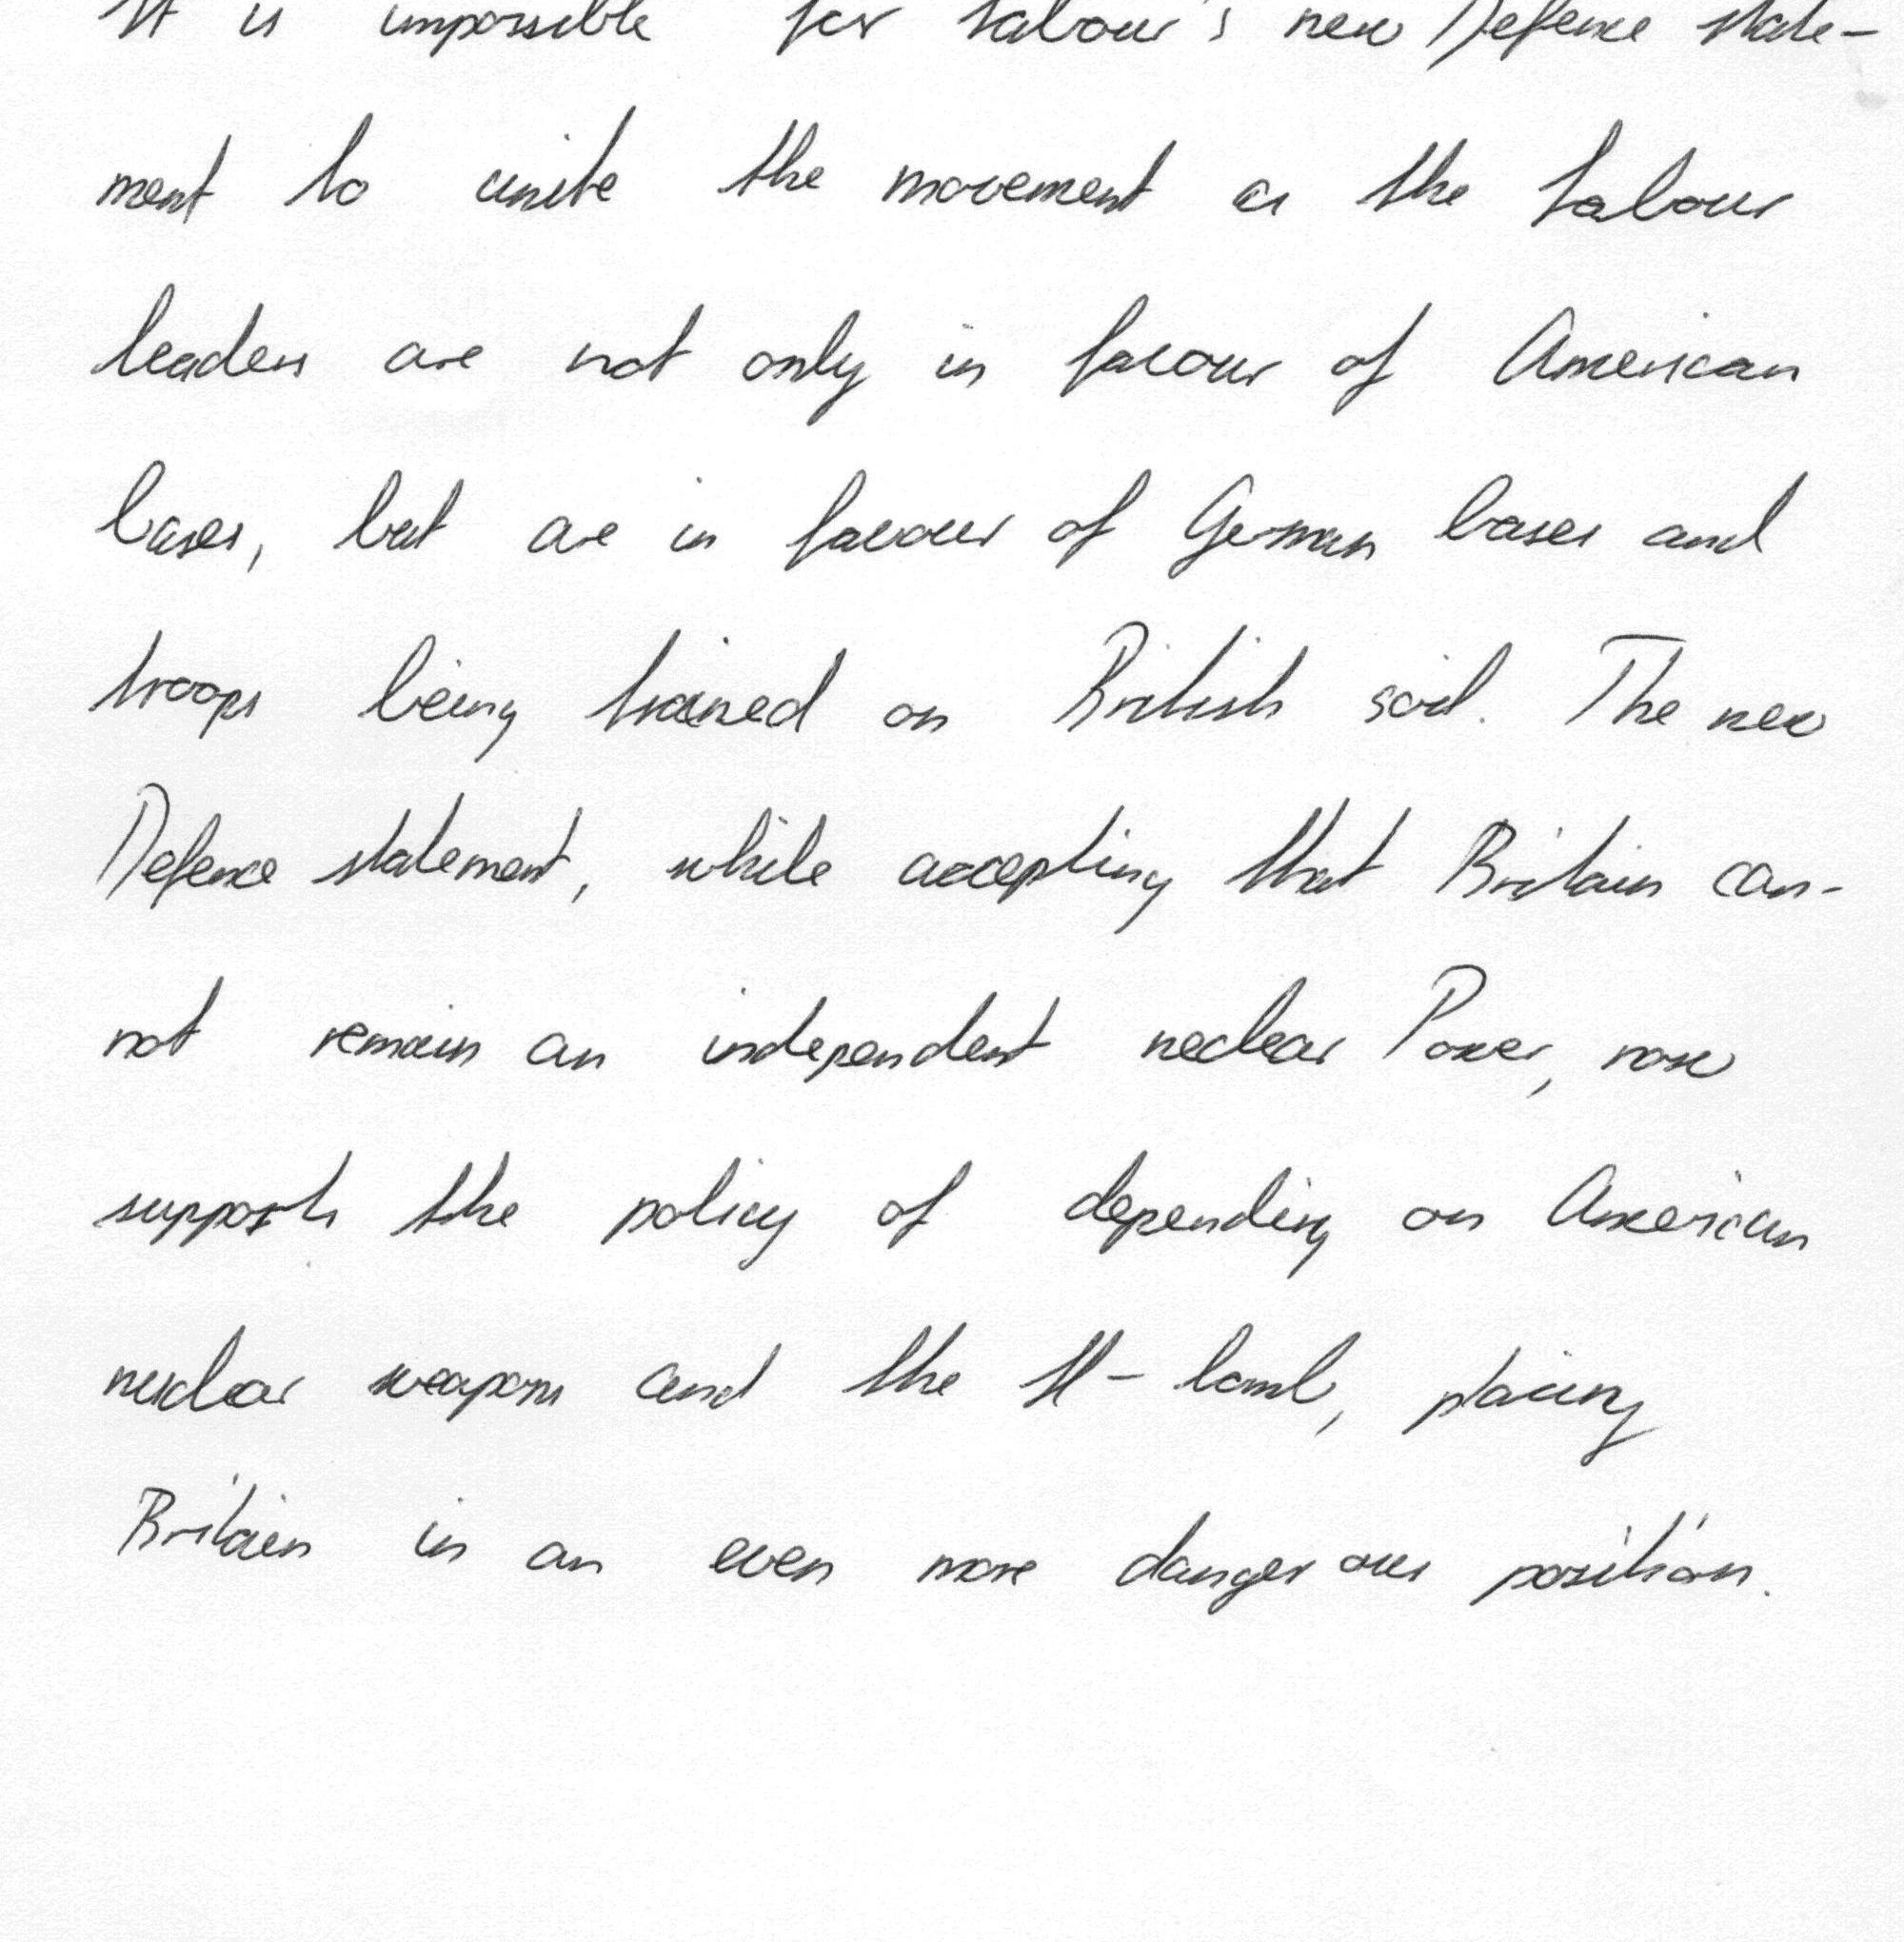 It is impossible for Labour's new Defence state-
ment to unite the movement as the Labour
leaders are not only in favour of American
bases, but are in favour of German bases and
troops being trained on British soil. The new
Defence statement, while accepting that Britain can-
not remain an independent neclear Power, now
supports the policy of depending on American
nuclear weapons and the H-bomb, placing
Britain in an even more dangerous position.